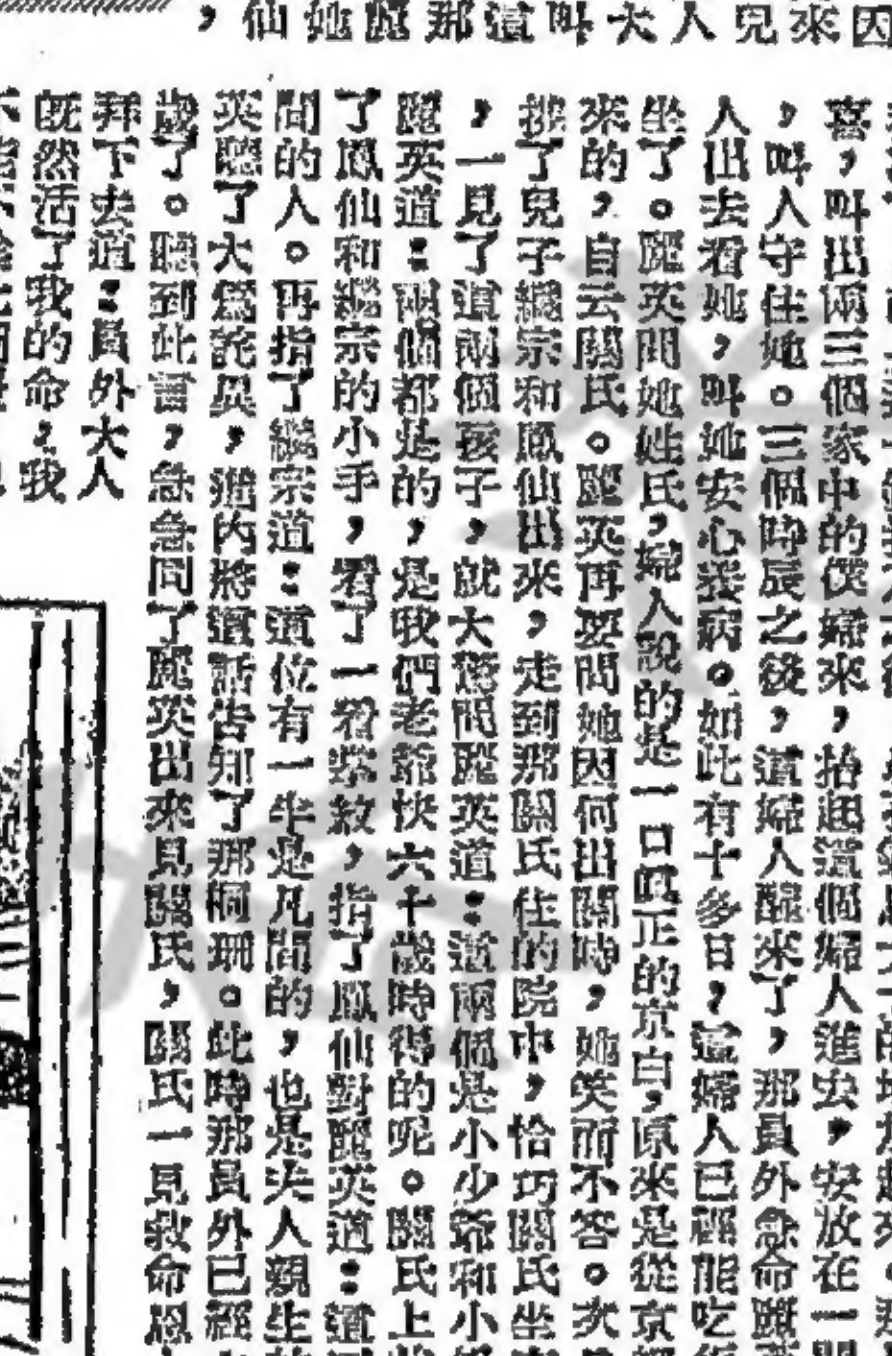 因來兒人大叫這那麗她仙，
喜，叫出兩三個家中的僕婦來，抬起這個婦人進去，安放在一間
，叫人守住她。三個時辰之後，這婦人醒來了，那員外急命麗英
人出去看她，叫她安心養病。如此有十多日，這婦人已經能吃飯
坐了。麗英問她姓氏，婦人說的是一口眞正的京白，原來是從京都
來的，自云關氏。麗英再要問她因何出關時，她笑而不答。次
挑了兒子繼宗和鳳仙出來，走到那關氏住的院中，恰巧關氏坐
，一見了這兩個孩子，就大驚問麗英道：這兩個是小少爺和小
麗英道：兩個都是的，是我們老爺快六十歲時得的呢。關氏上
了鳳仙和繼宗的小手，看了一看掌紋，指了鳳仙對麗英道：這
間的人。再指了繼宗道：這位有一半是凡間的，也是夫人親生
英聽了大爲詫異，進內將這話告知了那桐珊。此時那員外已經
歲了。聽到此言，急急同了麗英出來見關氏，關氏一見救命恩
拜下去道：員外大人
旣然活了我的命，我